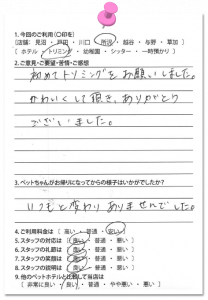 1.今回のご利用(○印を)
[店舗: 見沼 ・ 戸田 ・ 川口 所沢 ・ 越谷 ・ 与野 ・ 草加 ]
[ ホテル ・ トリミング ・ 幼稚園 ・ シッター ・ 一時預かり ]
2.ご意見・ご要望・苦情・ご感想
初めてトリミングをお願いしました。
かわいくして頂き、ありがとう
ございました。
3.ペットちゃんがお帰りになってからの様子はいかがでしたか?
いつもと変わりありませんでした。
4.ご利用料金は [ 高い ・ 普通 ・ 安い ]
5.スタッフの対応は [ 良い ・ 普通 ・ 悪い ]
6.スタッフの礼節は [ 良い ・ 普通 ・ 悪い ]
7.スタッフの笑顔は [ 良い ・ 普通 ・ 悪い ]
8.スタッフの説明は [ 良い ・ 普通 ・ 悪い ]
9.他のペットホテルと比較して当店は
[ 非常に良い ・ 良い ・ 普通 ・ やや悪い ・ 悪い ]